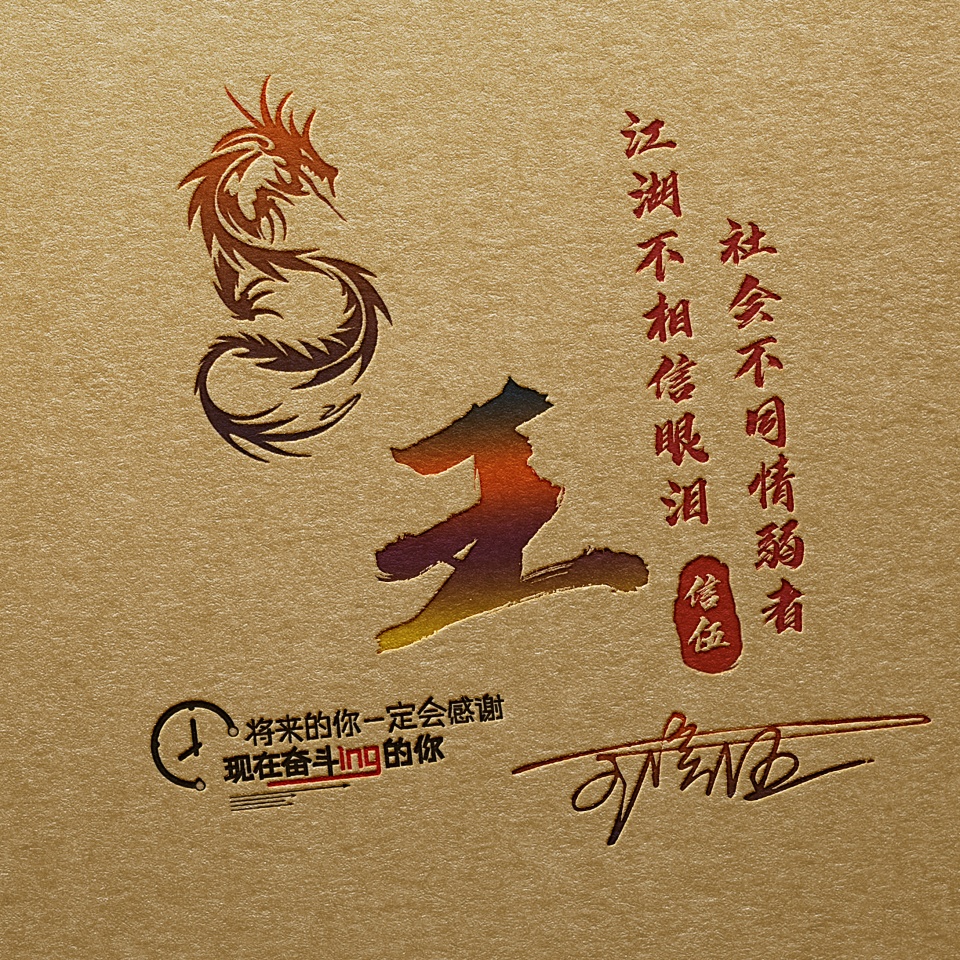 江湖不相信眼泪
社会不同情弱者
信伍
王
将来的你一定会感谢
现在奋斗ing的你